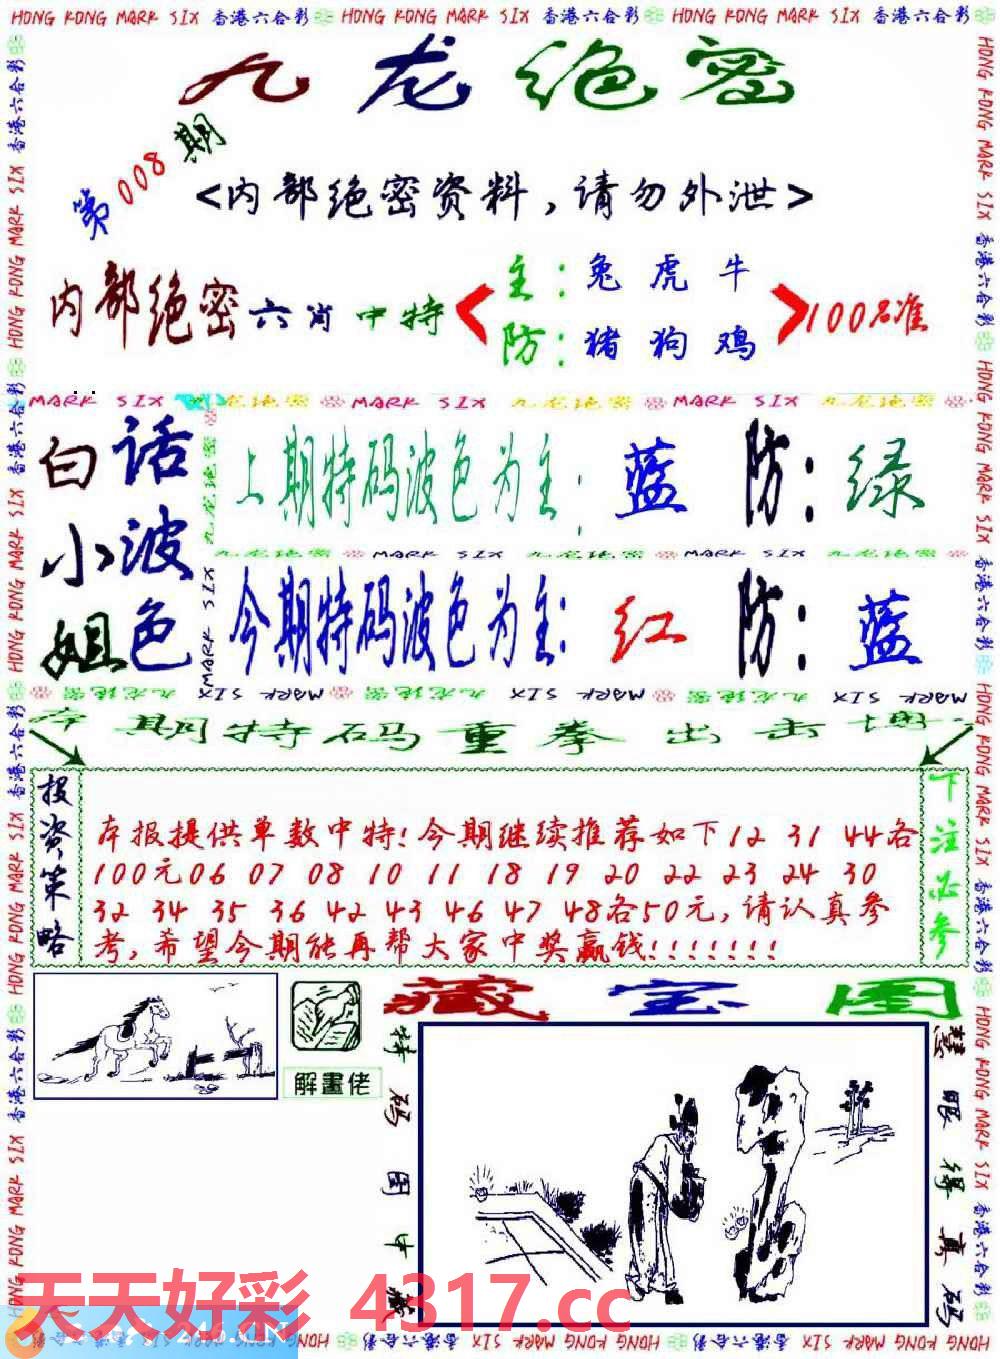 HONG KONG MARK SIX 香港六合彩 HONG KONG MARK SIX 香港六合彩 HONG KONG MARK SIX 香港六合彩
九龙绝密
第008期
<内部绝密资料,请勿外泄>
内部绝密六肖中特
主:兔 虎 牛
防:猪 狗 鸡
100%准
MARK SIX 九龙绝密 MARK SIX 九龙绝密 MARK SIX 九龙绝密
白小姐
话波色
上期特码波色为主: 蓝 防: 绿
九龙绝密 MARK SIX 九龙绝密 MARK SIX 九龙绝密
今期特码波色为主: 红 防: 蓝
本期特码重拳出击
投资策略
本报提供单数中特!今期继续推荐如下12 31 44各
100元06 07 08 10 11 18 19 20 22 23 24 30
32 34 35 36 42 43 46 47 48各50元,请认真参
考,希望今期能再帮大家中奖赢钱!!!!!!!
下注必参
藏宝图
解畫佬
特码图中藏
慧眼得真码
天天好彩 4317.cc